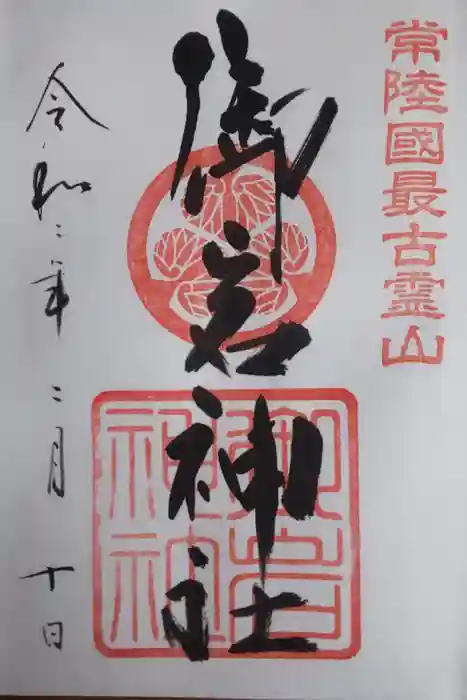 常陸國最古霊山
御岩神社
御岩神社
令和二年二月十日